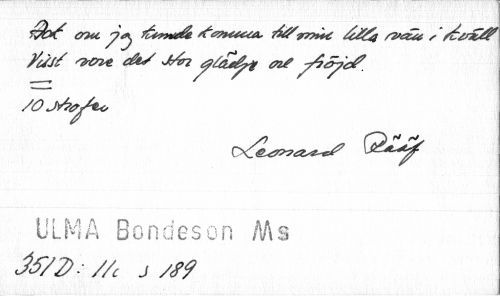 Ack om jag kunde komma till min lilla vän i kväll
Visst vore det stor glädje och fröjd.
10 strofer
Leonard Rääf
ULMA Bondeson Ms
351 D: 11c s 189